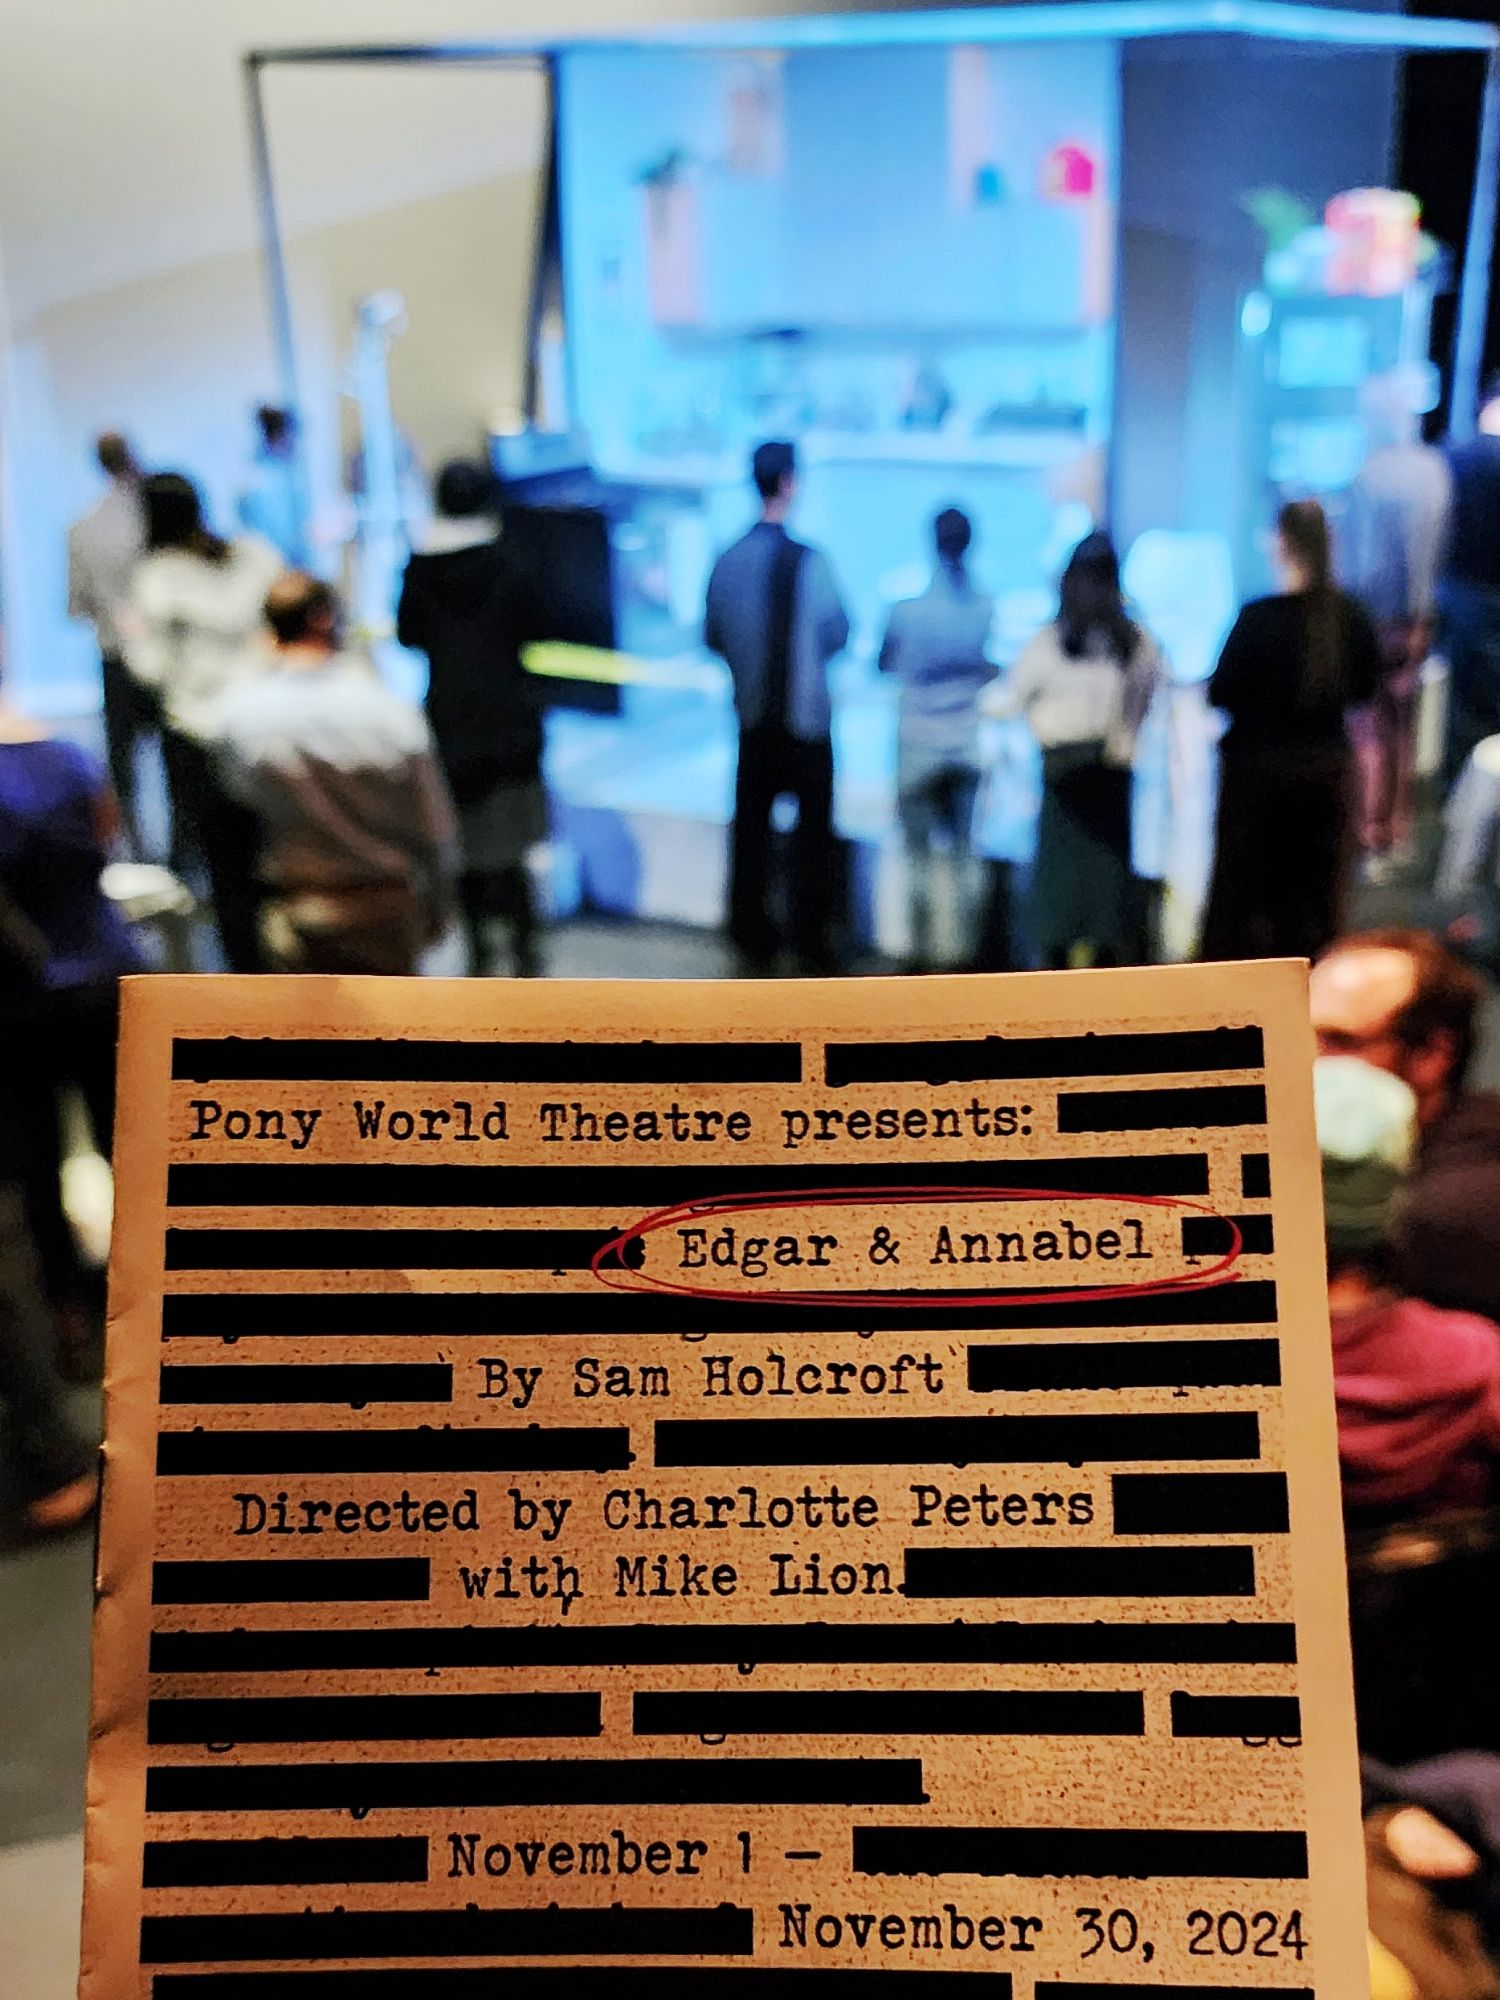 Pony World Theatre presents:
Edgar & Annabel
By Sam Holcroft
Directed by Charlotte Peters
with Mike Lion.
November 1 –
November 30, 2024